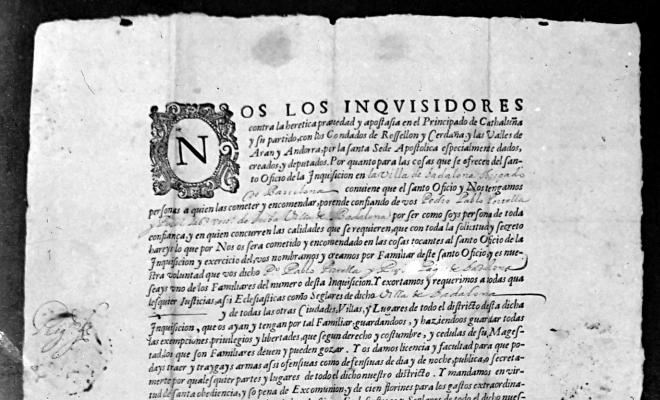 NOS LOS INQVISIDORES
contra la heretica pravedad y apostasia en el Principado de Cathaluña
y su partido, con los Condados de Rossellon y Cerdaña, y las Valles de
Aran y Andorra, por la santa Sede Apostolica especialmente dados,
creados, y deputados. Por quanto para las cosas que se ofrecen del san-
to Oficio de la Inquisicion en la Villa de Badalona
de Barcelona conviene que el santo Oficio y Nos tengamos
personas a quien las cometer y encomendar, porende confiando de vos Pedro Pablo
Villa de Badalona por ser como soys persona de toda
confiança, y en quien concurren las calidades que se requieren, que con toda la solicitud y secreto
hareys lo que por Nos os sera cometido y encomendado en las cosas tocantes al santo Oficio de la
Inquisicion y exercicio del vos nombramos y creamos por Familiar deste santo Oficio, y es nue-
stra voluntad que vos dicho Pº Pablo
seays vno de los Familiares del numero desta Inquisicion. Y exortamos y requerimos a todas qua
lesquier Iusticias, assi Eclesiasticas como Seglares de dicho Villa de Badalona
y de todas las otras Ciudades, Villas, y Lugares de todo el districto desta dicha
Inquisicion, que os ayan y tengan por tal Familiar, guardandoos, y haziendoos guardar todas
las exempciones privilegios y libertades, que segun derecho y costumbre, y cedulas de su Mages-
tad los que son Familiares deuen y pueden gozar. Y os damos licencia y facultad para que po-
days traer y traygays armas assi ofensiuas como defensiuas de dia y de noche, publica, o secreta-
mente por qualesquier partes y lugares de todo el dicho nuestro districto. Y mandamos en vir-
tud de santa obediencia, y so pena de Excomunion, y de cien florines para los gastos extraordina-